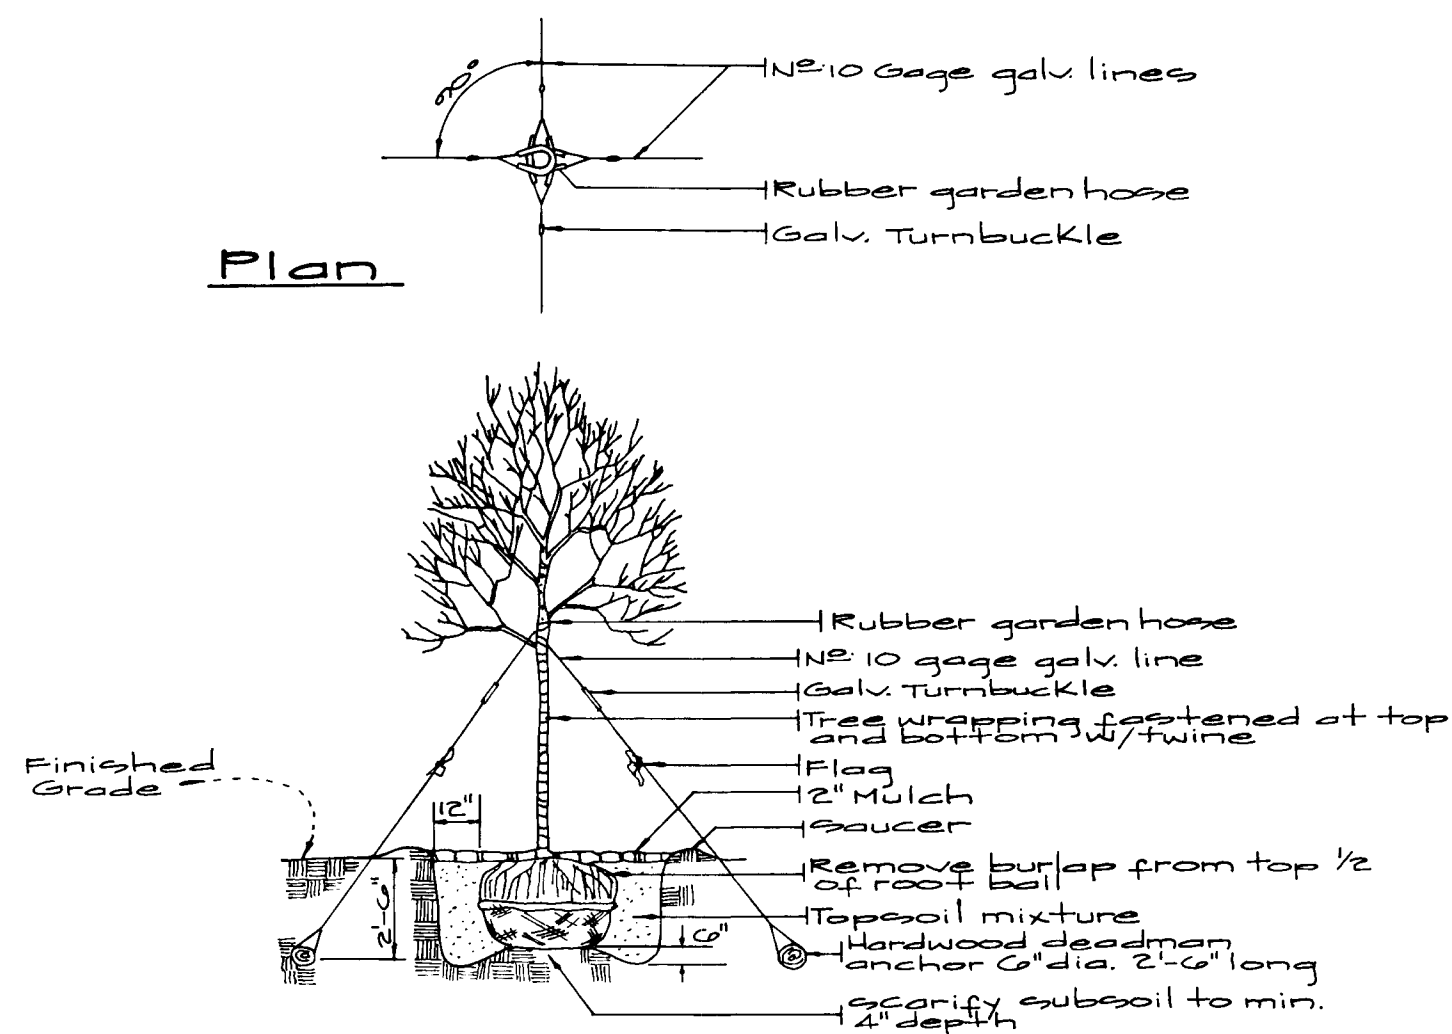 90°
Nº 10 Gage galv. lines
Rubber garden hose
Galv. Turnbuckle
Plan
Rubber garden hose
Nº 10 gage galv. line
Galv. Turnbuckle
Tree wrapping fastened at top
and bottom w/twine
Finished
Grade
Flag
2" Mulch
12"
Saucer
Remove burlap from top 1/2
of root ball
2'-6"
Topsoil mixture
6"
Hardwood deadman
anchor 6" dia. 2'-6" long
Scarify subsoil to min.
4" depth